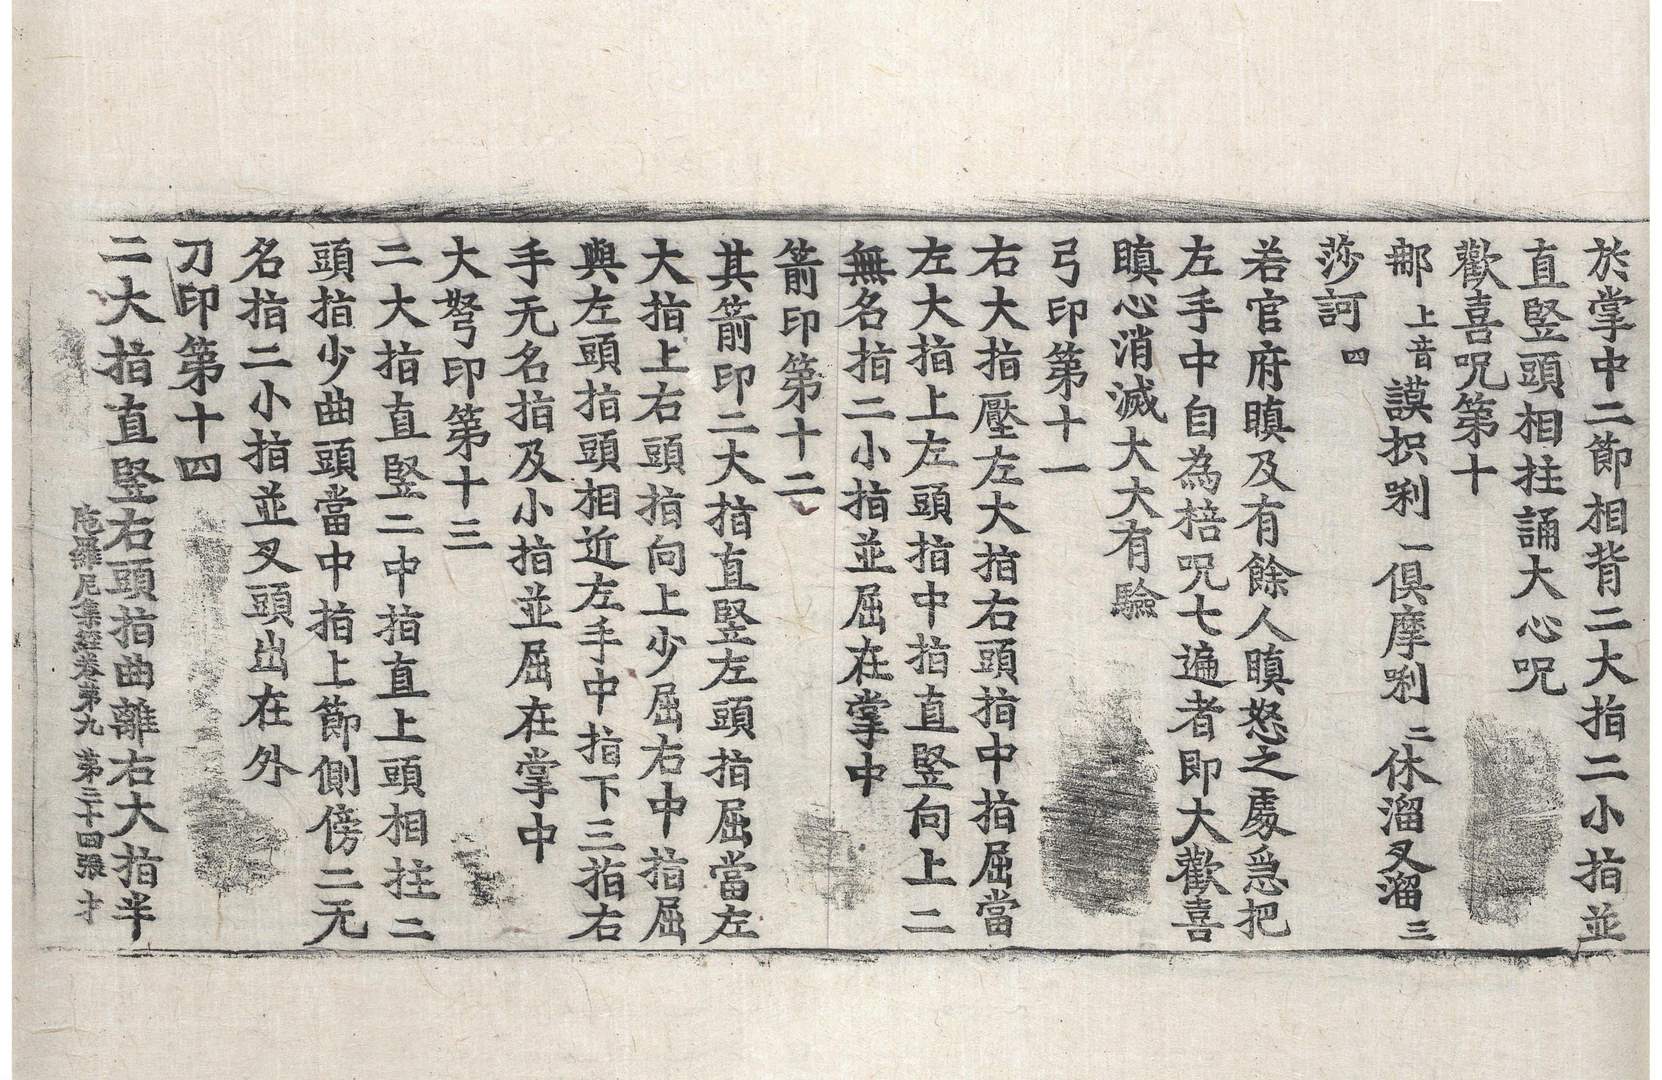 於掌中二節相背二大指二小指並
直竪頭相拄誦大心呪
歡喜呪第十
那上音謨枳唎一俱摩唎二休溜叉溜三
莎訶四
若官府瞋及有餘人瞋怒之處爲把
左手中自為棓呪七遍者即大歡喜
瞋心消滅大大有驗
弓印第十一
右大指壓左大指右頭指中指屈當
左大指上左頭指中指直竪向上二
無名指二小指並屈在掌中
箭印第十二
其箭印二大指直竪左頭指屈當左
大指上右頭指向上少屈右中指屈
與左頭指頭相近左手中指下三指右
手无名指及小指並屈在掌中
大弩印第十三
二大指直竪二中指直上頭相拄二
頭指少曲頭當中指上節側傍二无
名指二小指並叉頭出在外
刀印第十四
二大指直竪右頭指曲離右大指半
陁羅尼集經卷第九 第三十四張 才